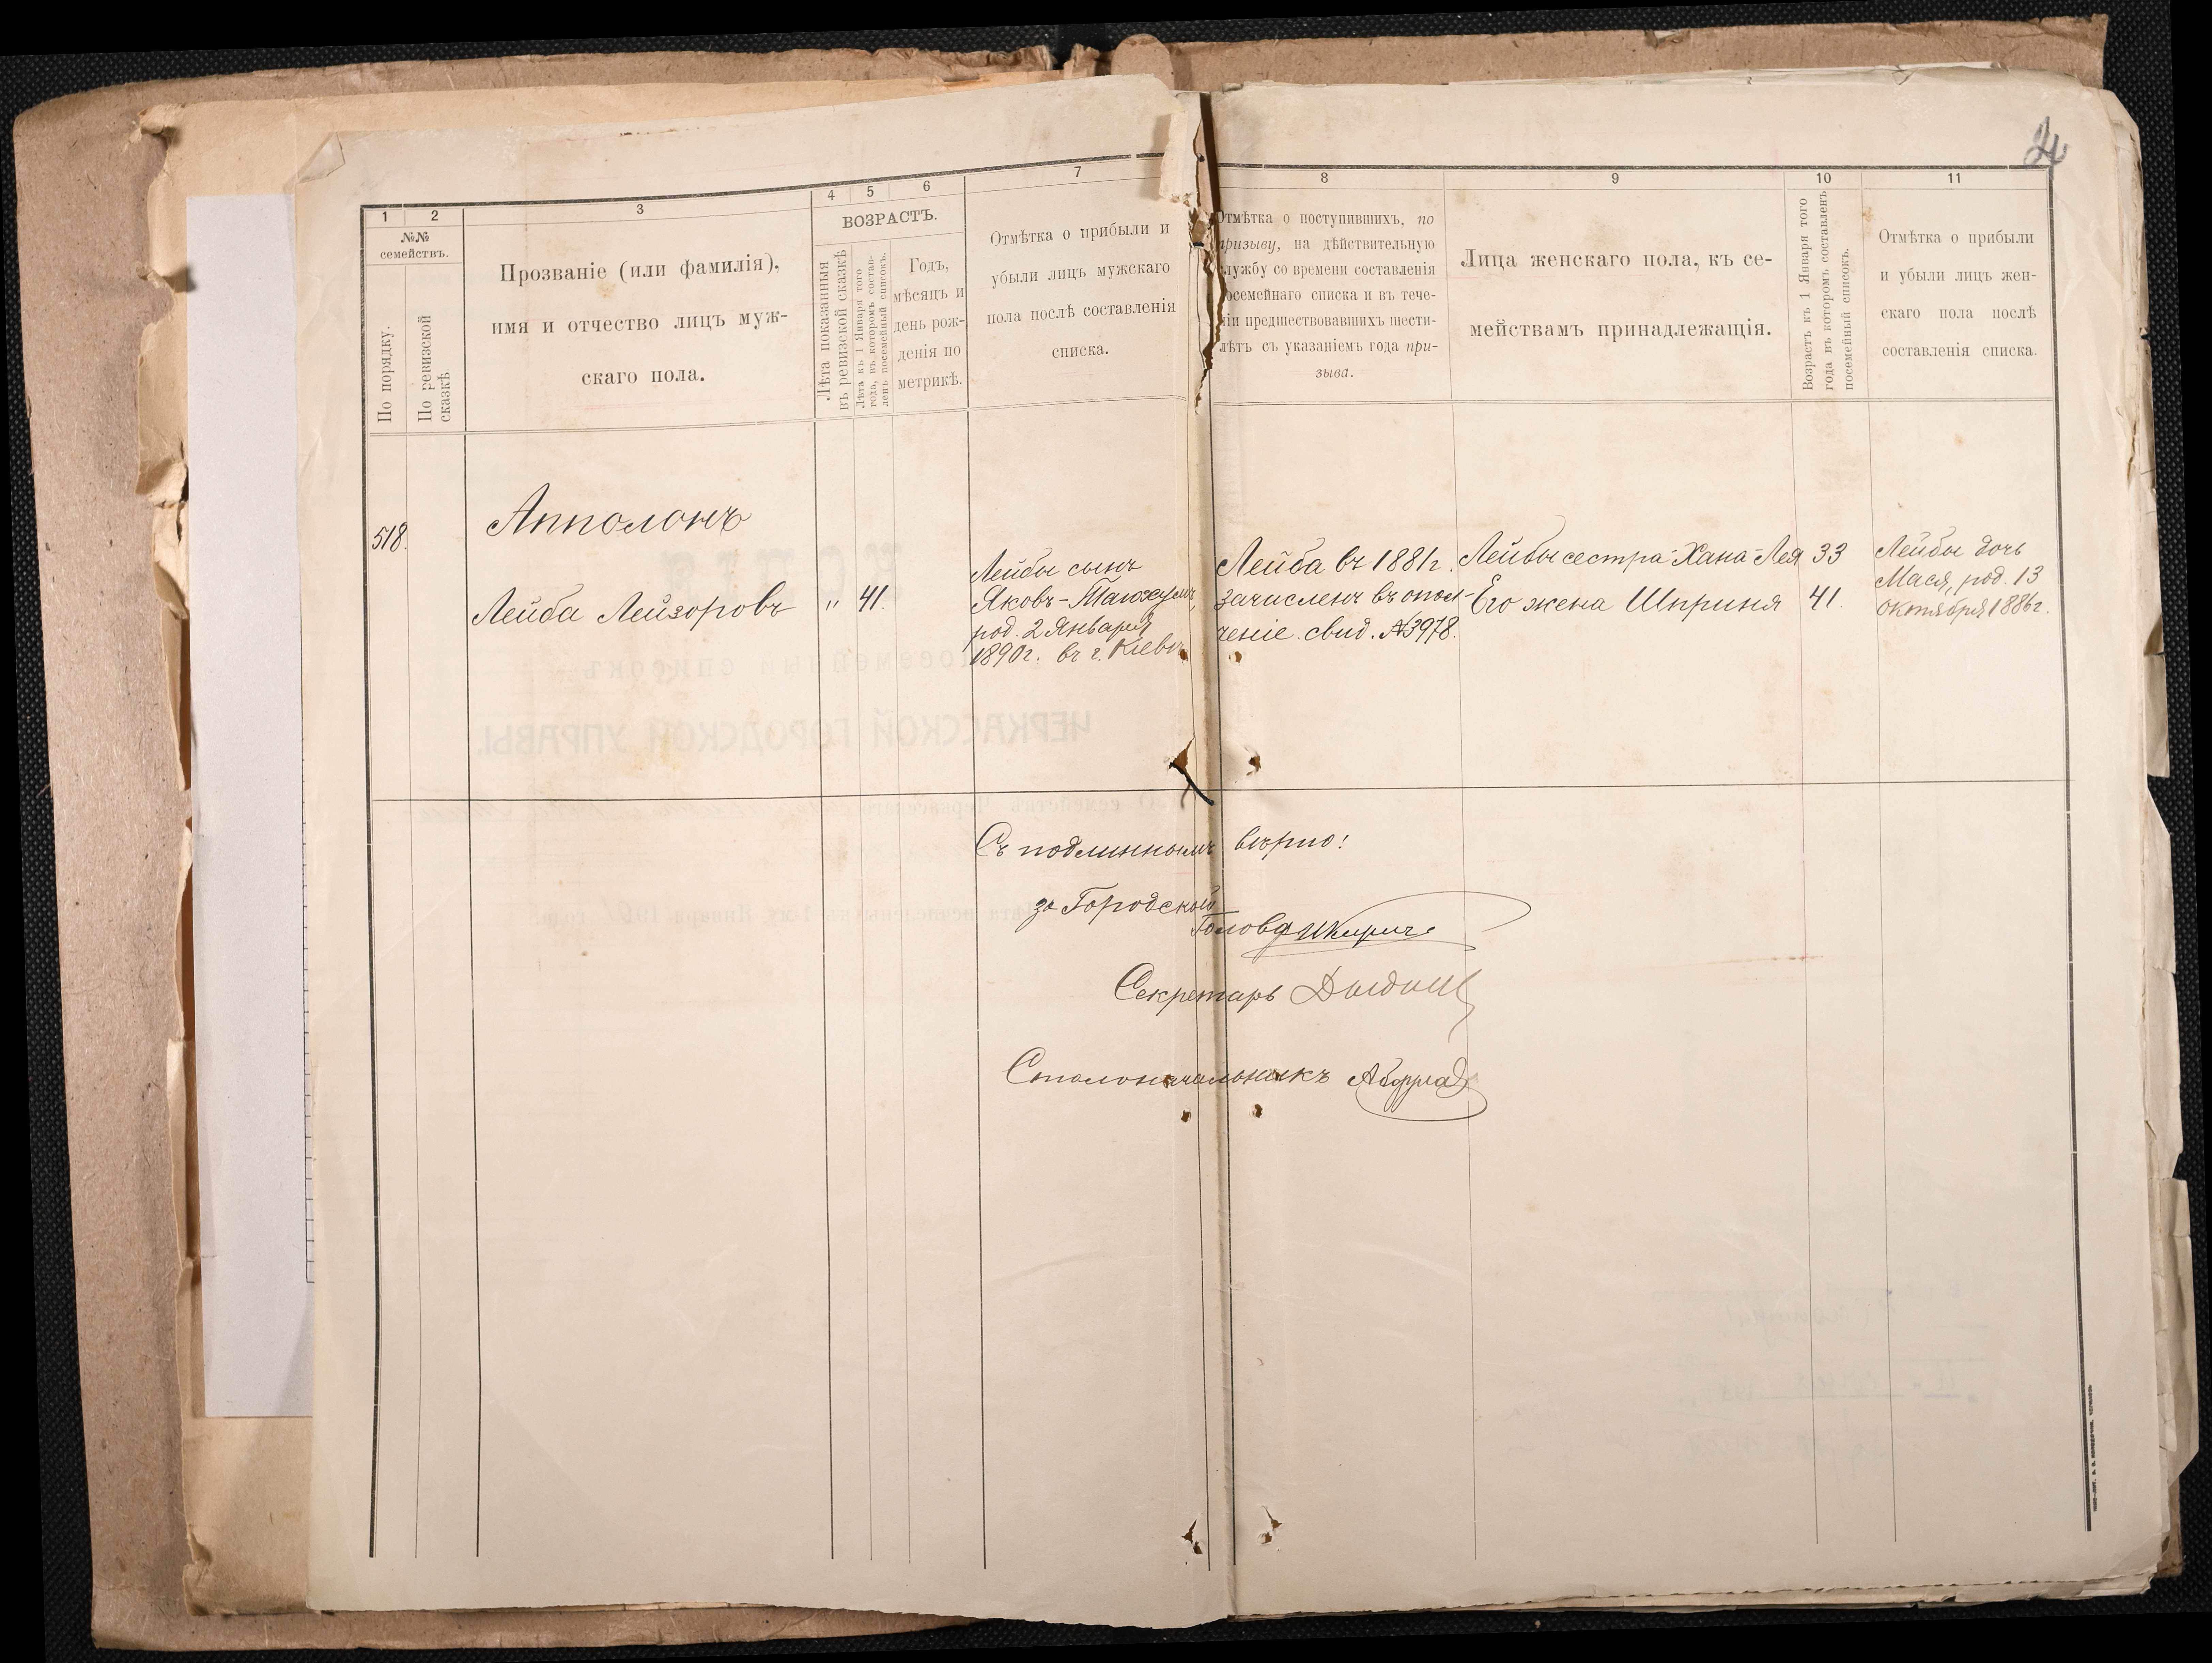 24
1 2 3 4 5 6 7 8 9 10 11
№№ семействъ.
По порядку.
По ревизской сказкѣ
Прозваніе (или фамилія),
имя и отчество лицъ муж-
скаго пола.
ВОЗРАСТЪ.
Лѣта показанныя
въ ревизской сказкѣ
Лѣта къ 1 Января того
года, въ которомъ состав-
ленъ посемейный списокъ.
Годъ,
мѣсяцъ и
день рож-
денія по
метрикѣ.
Отмѣтка о прибыли и
убыли лицъ мужскаго
пола послѣ составленія
списка.
Отмѣтка о поступившихъ, по
призыву, на дѣйствительную
службу со времени составленія
посемейнаго списка и въ тече-
ніи предшествовавшихъ шести-
лѣтъ съ указаніемъ года при-
зыва.
Лица женскаго пола, къ се-
мействамъ принадлежащія.
Возрастъ къ 1 Января того
года въ которомъ составленъ
посемейный списокъ.
Отмѣтка о прибыли
и убыли лицъ жен-
скаго пола послѣ
составленія списка.
518.
Апполонъ
Лейба Лейзоровъ " 41.
Лейбы сынъ
Яковъ-Танхумъ,
род. 2 Января
1890г. въ г. Кіевѣ
Лейба въ 1881г.
зачисленъ въ опол-
ченіе. свид. №3978.
Лейбы сестра Хана-Лея 33
Его жена Шприня 41.
Лейбы дочь
Мася, род. 13
октября 1886г.
Съ подлиннымъ вѣрно!
за Городской
Голова
Секретарь
Столоначальникъ
КОПІЯ
посемейный списокъ
ЧЕРКАССКОЙ ГОРОДСКОЙ УПРАВЫ
О семействѣ Черкасскаго